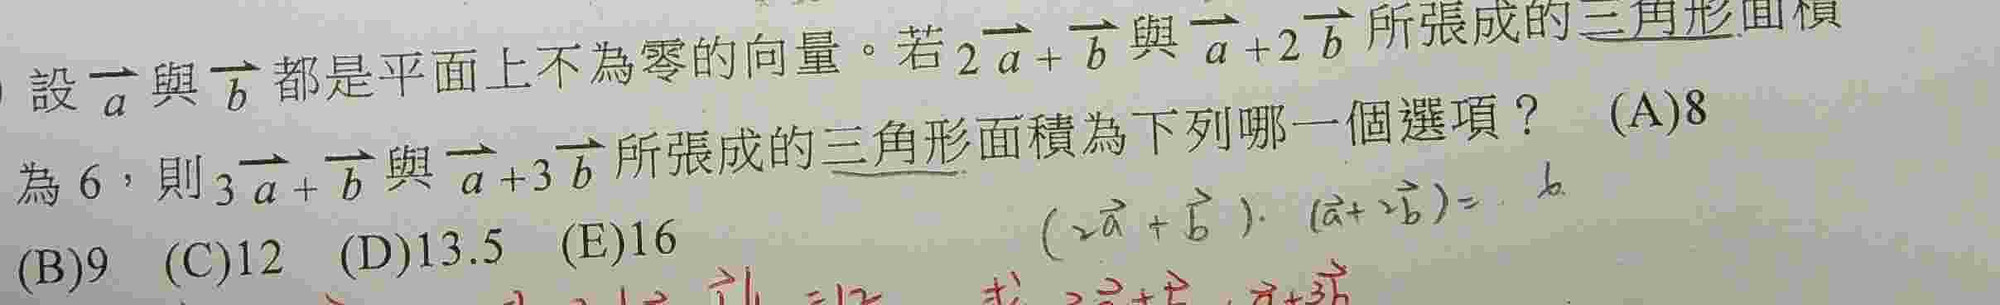 設 a⃗ 與 b⃗ 都是平面上不為零的向量。若 2a⃗ + b⃗ 與 a⃗ + 2b⃗ 所張成的三角形面積
為 6,則 3a⃗ + b⃗ 與 a⃗ + 3b⃗ 所張成的三角形面積為下列哪一個選項? (A)8
(B)9 (C)12 (D)13.5 (E)16
(2a⃗ + b⃗)·(a⃗ + 2b⃗) = 6
=12 求 3a⃗ + b⃗, a⃗ + 3b⃗